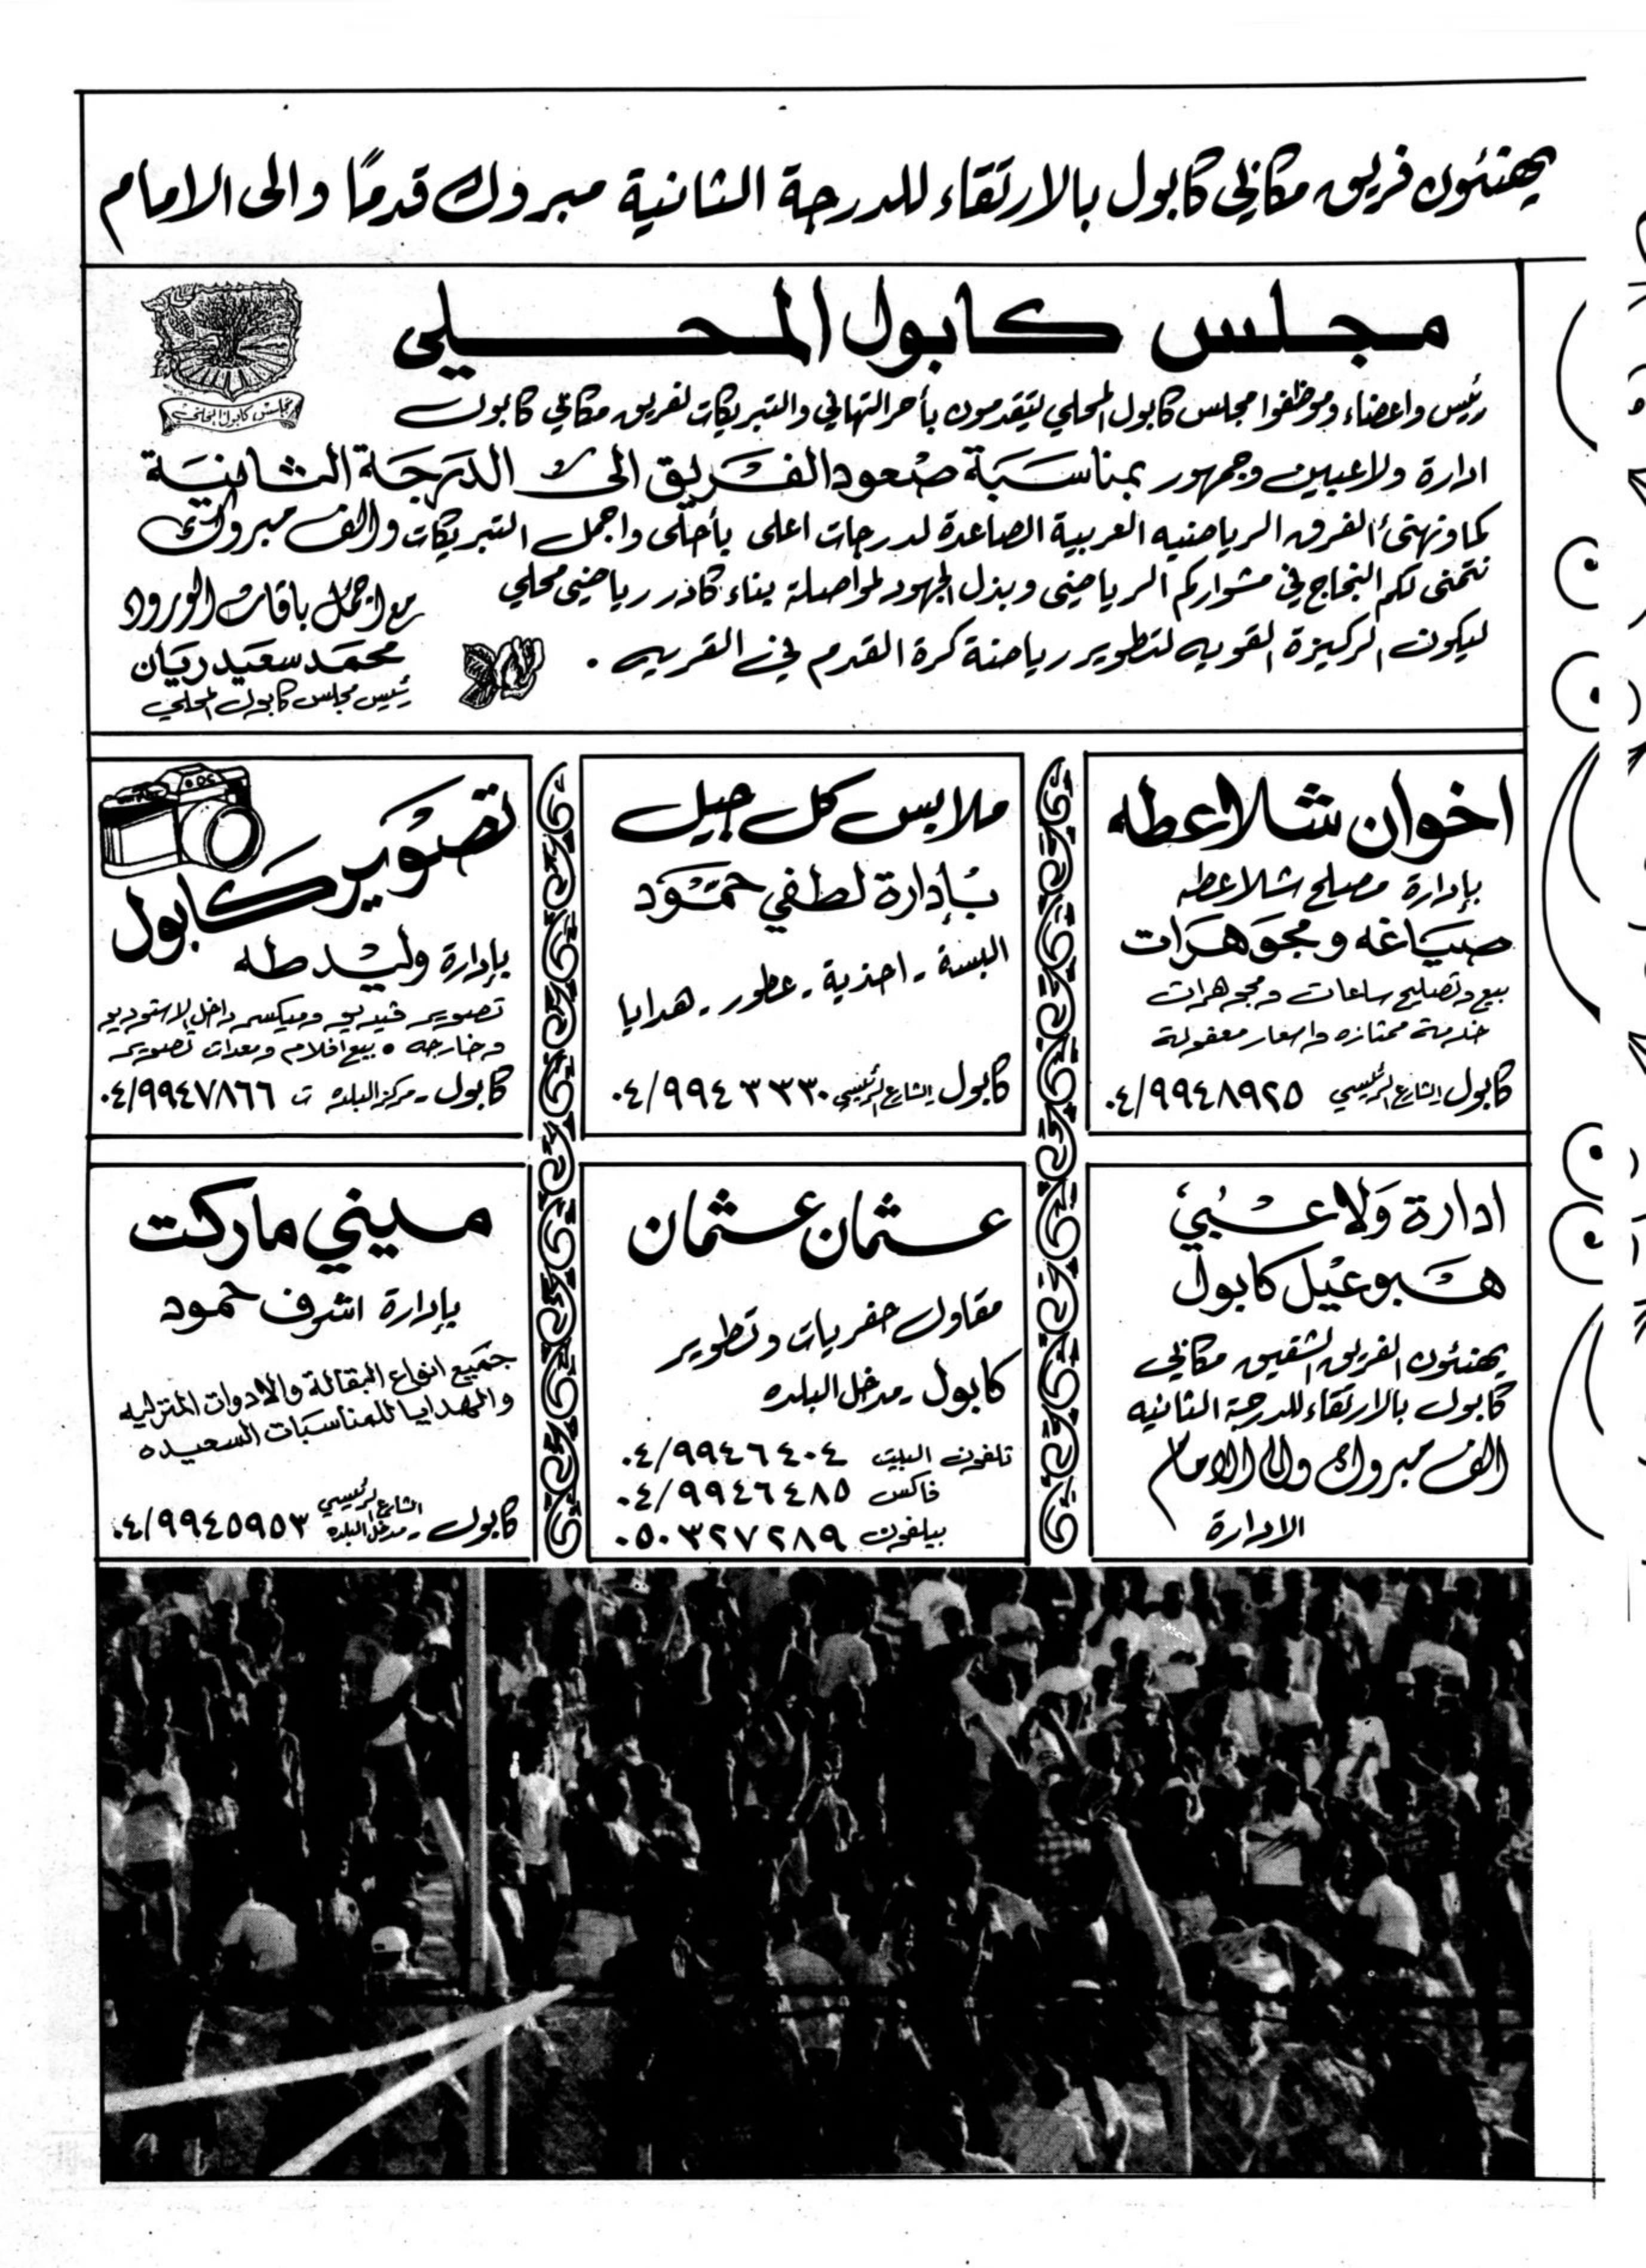 يهنئون فريق مكابي كابول بالارتقاء للدرجة الثانية مبروك قدمًا والى الامام
مجلس كابول المحلي
مجلس كابول المحلي
رئيس واعضاء وموظفوا مجلس كابول المحلي يتقدمون بأحر التهاني والتبريكات لفريق مكابي كابول
ادارة ولاعبين وجمهور بمناسبة صعود الفريق الى الدرجة الثانية
كما ونهنئ الفرق الرياضيه العربية الصاعدة لدرجات اعلى بأحلى واجمل التبريكات والف مبروك
نتمنى لكم النجاح في مشواركم الرياضي وبذل الجهود لمواصلة بناء كادر رياضي محلي
ليكون الركيزة القويه لتطوير رياضة كرة القدم في القريه .
مع اجمل باقات الورود
محمد سعيد ريان
رئيس مجلس كابول المحلي
اخوان شلاعطه
بإدارة مصلح شلاعطه
صياغه ومجوهرات
بيع وتصليح ساعات ومجوهرات
خدمة ممتازه واسعار معقولة
كابول الشارع الرئيسي ٠٤/٩٩٤٨٩٢٥
ملابس كل جيل
بإدارة لطفي حمود
البسة - احذية - عطور - هدايا
كابول الشارع الرئيسي ٠٤/٩٩٤٣٣٣٠
تصوير كابول
بإدارة وليد طه
تصوير فيديو وميكسر داخل الاستوديو
وخارجه • بيع افلام ومعدات تصوير
كابول - مركز البلده ت ٠٤/٩٩٤٧٨٦٦
ادارة ولاعبي
هبوعيل كابول
يهنئون الفريق الشقيق مكابي
كابول بالارتقاء للدرجة الثانيه
الف مبروك والى الامام
الادارة
عثمان عثمان
مقاول حفريات وتطوير
كابول - مدخل البلده
تلفون البيت ٠٤/٩٩٤٦٤٠٤
فاكس ٠٤/٩٩٤٦٤٨٥
بيلفون ٠٥٠٣٢٧٢٨٩
ميني ماركت
بإدارة اشرف حمود
جميع انواع البقالة والادوات المنزليه
والهدايا للمناسبات السعيده
كابول - الشارع الرئيسي مدخل البلده ٠٤/٩٩٤٥٩٥٣